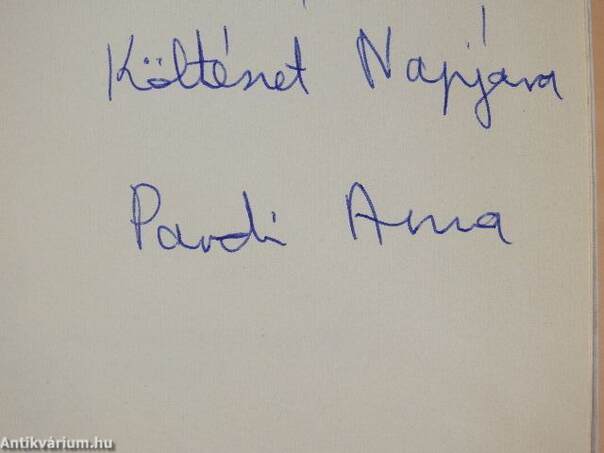 Költészet Napjára
Pardi Anna
Antikvárium.hu